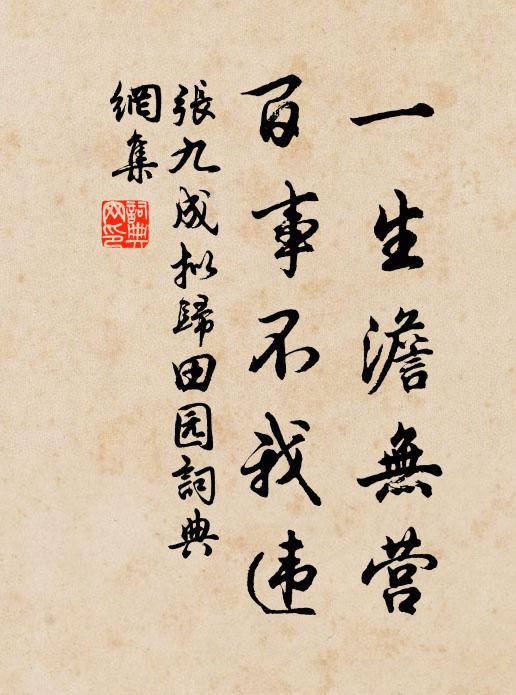 一生澹無营
百事不我违
張九成拟歸田园詞典
網集
詞典
网印